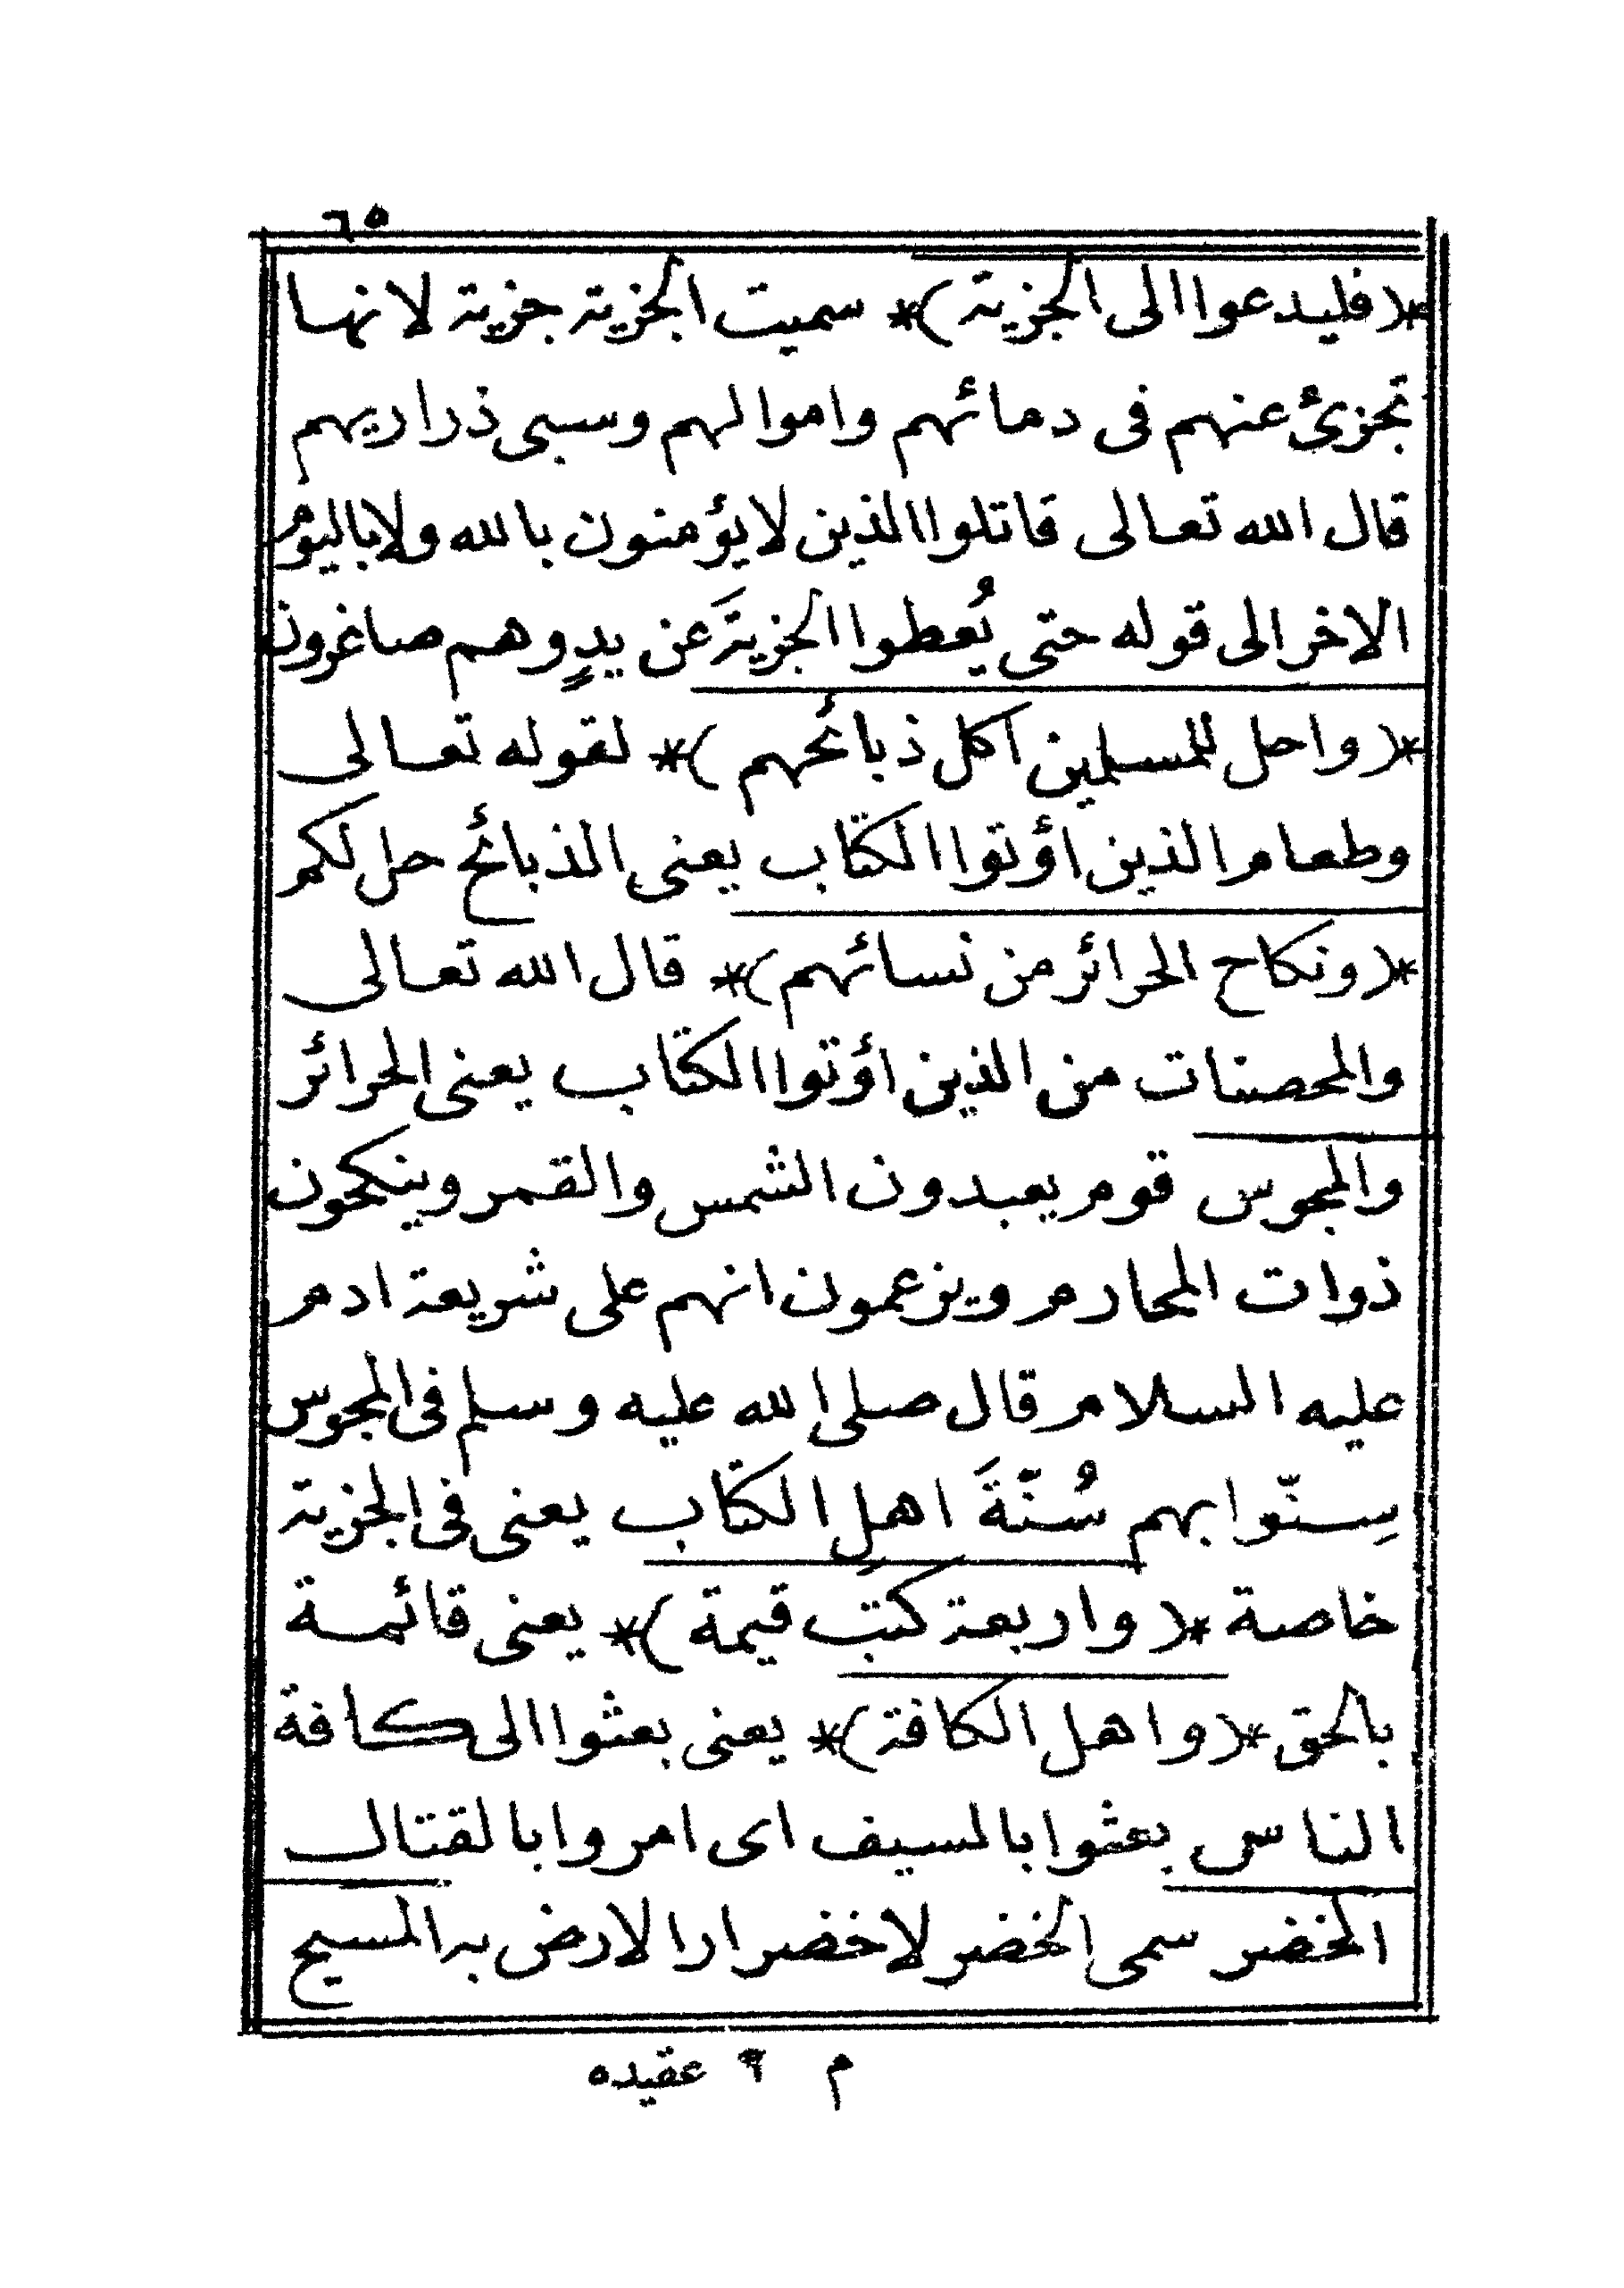 ٦٥
*( فليدعوا الى الجزية )* سميت الجزية جزية لانها
تجزئ عنهم فى دمائهم واموالهم وسبى ذراريهم
قال الله تعالى قاتلوا الذين لا يؤمنون بالله ولا باليوم
الاخر الى قوله حتى يُعطوا الجزيةَ عن يدٍ وهم صاغرون
*( واحل للمسلمين اكل ذبائحهم )* لقوله تعالى
وطعام الذين اؤتوا الكتاب يعنى الذبائح حل لكم
*( ونكاح الحرائر من نسائهم )* قال الله تعالى
والمحصنات من الذين اؤتوا الكتاب يعنى الحرائر
والمجوس قوم يعبدون الشمس والقمر وينكحون
ذوات المحارم ويزعمون انهم على شريعة ادم
عليه السلام قال صلى الله عليه وسلم فى المجوس
سِنّوا بهم سُنّةَ اهلِ الكتاب يعنى فى الجزية
خاصة *( واربعة كتب قيمة )* يعنى قائمة
بالحق *( واهل الكافة )* يعنى بعثوا الى كافة
الناس بعثوا بالسيف اى امروا بالقتال
الخضر سمى الخضر لاخضرار الارض به المسيح
م ٩ عقيده